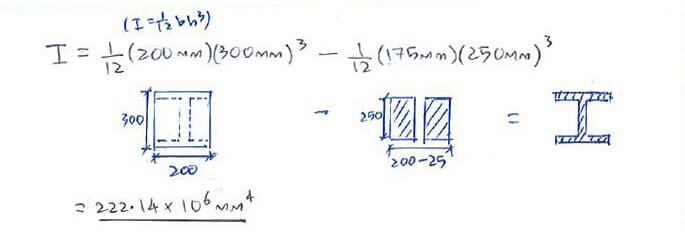 (I = 1/12 bh³)
I = 1/12 (200mm)(300mm)³ − 1/12 (175mm)(250mm)³
300 - 250 =
200 200-25
= 222.14 × 10⁶ mm⁴